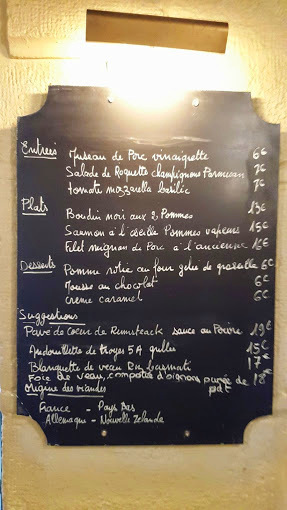 Entrees Museau de Porc vinaigrette 6€
Salade de Roquette champignons Parmesan 7€
tomate mozzarella basilic 7€
Plats Boudin noir aux 2 Pommes 13€
Saumon à l'oseille Pommes vapeurs 15€
Filet mignon de Porc à l'ancienne 16€
Desserts Pomme rotie au four gelée de groseille 6€
Mousse au chocolat 6€
Creme caramel 6€
Suggestions
Pavé de Coeur de Rumsteack sauce au Poivre 19€
Andouillette de troyes 5A grillée 15€
Blanquette de veau Riz basmati 17€
Foie de veau, compotée d'oignons purée de pdt 18€
Origine des viandes
France - Pays Bas
Allemagne - Nouvelle Zelande